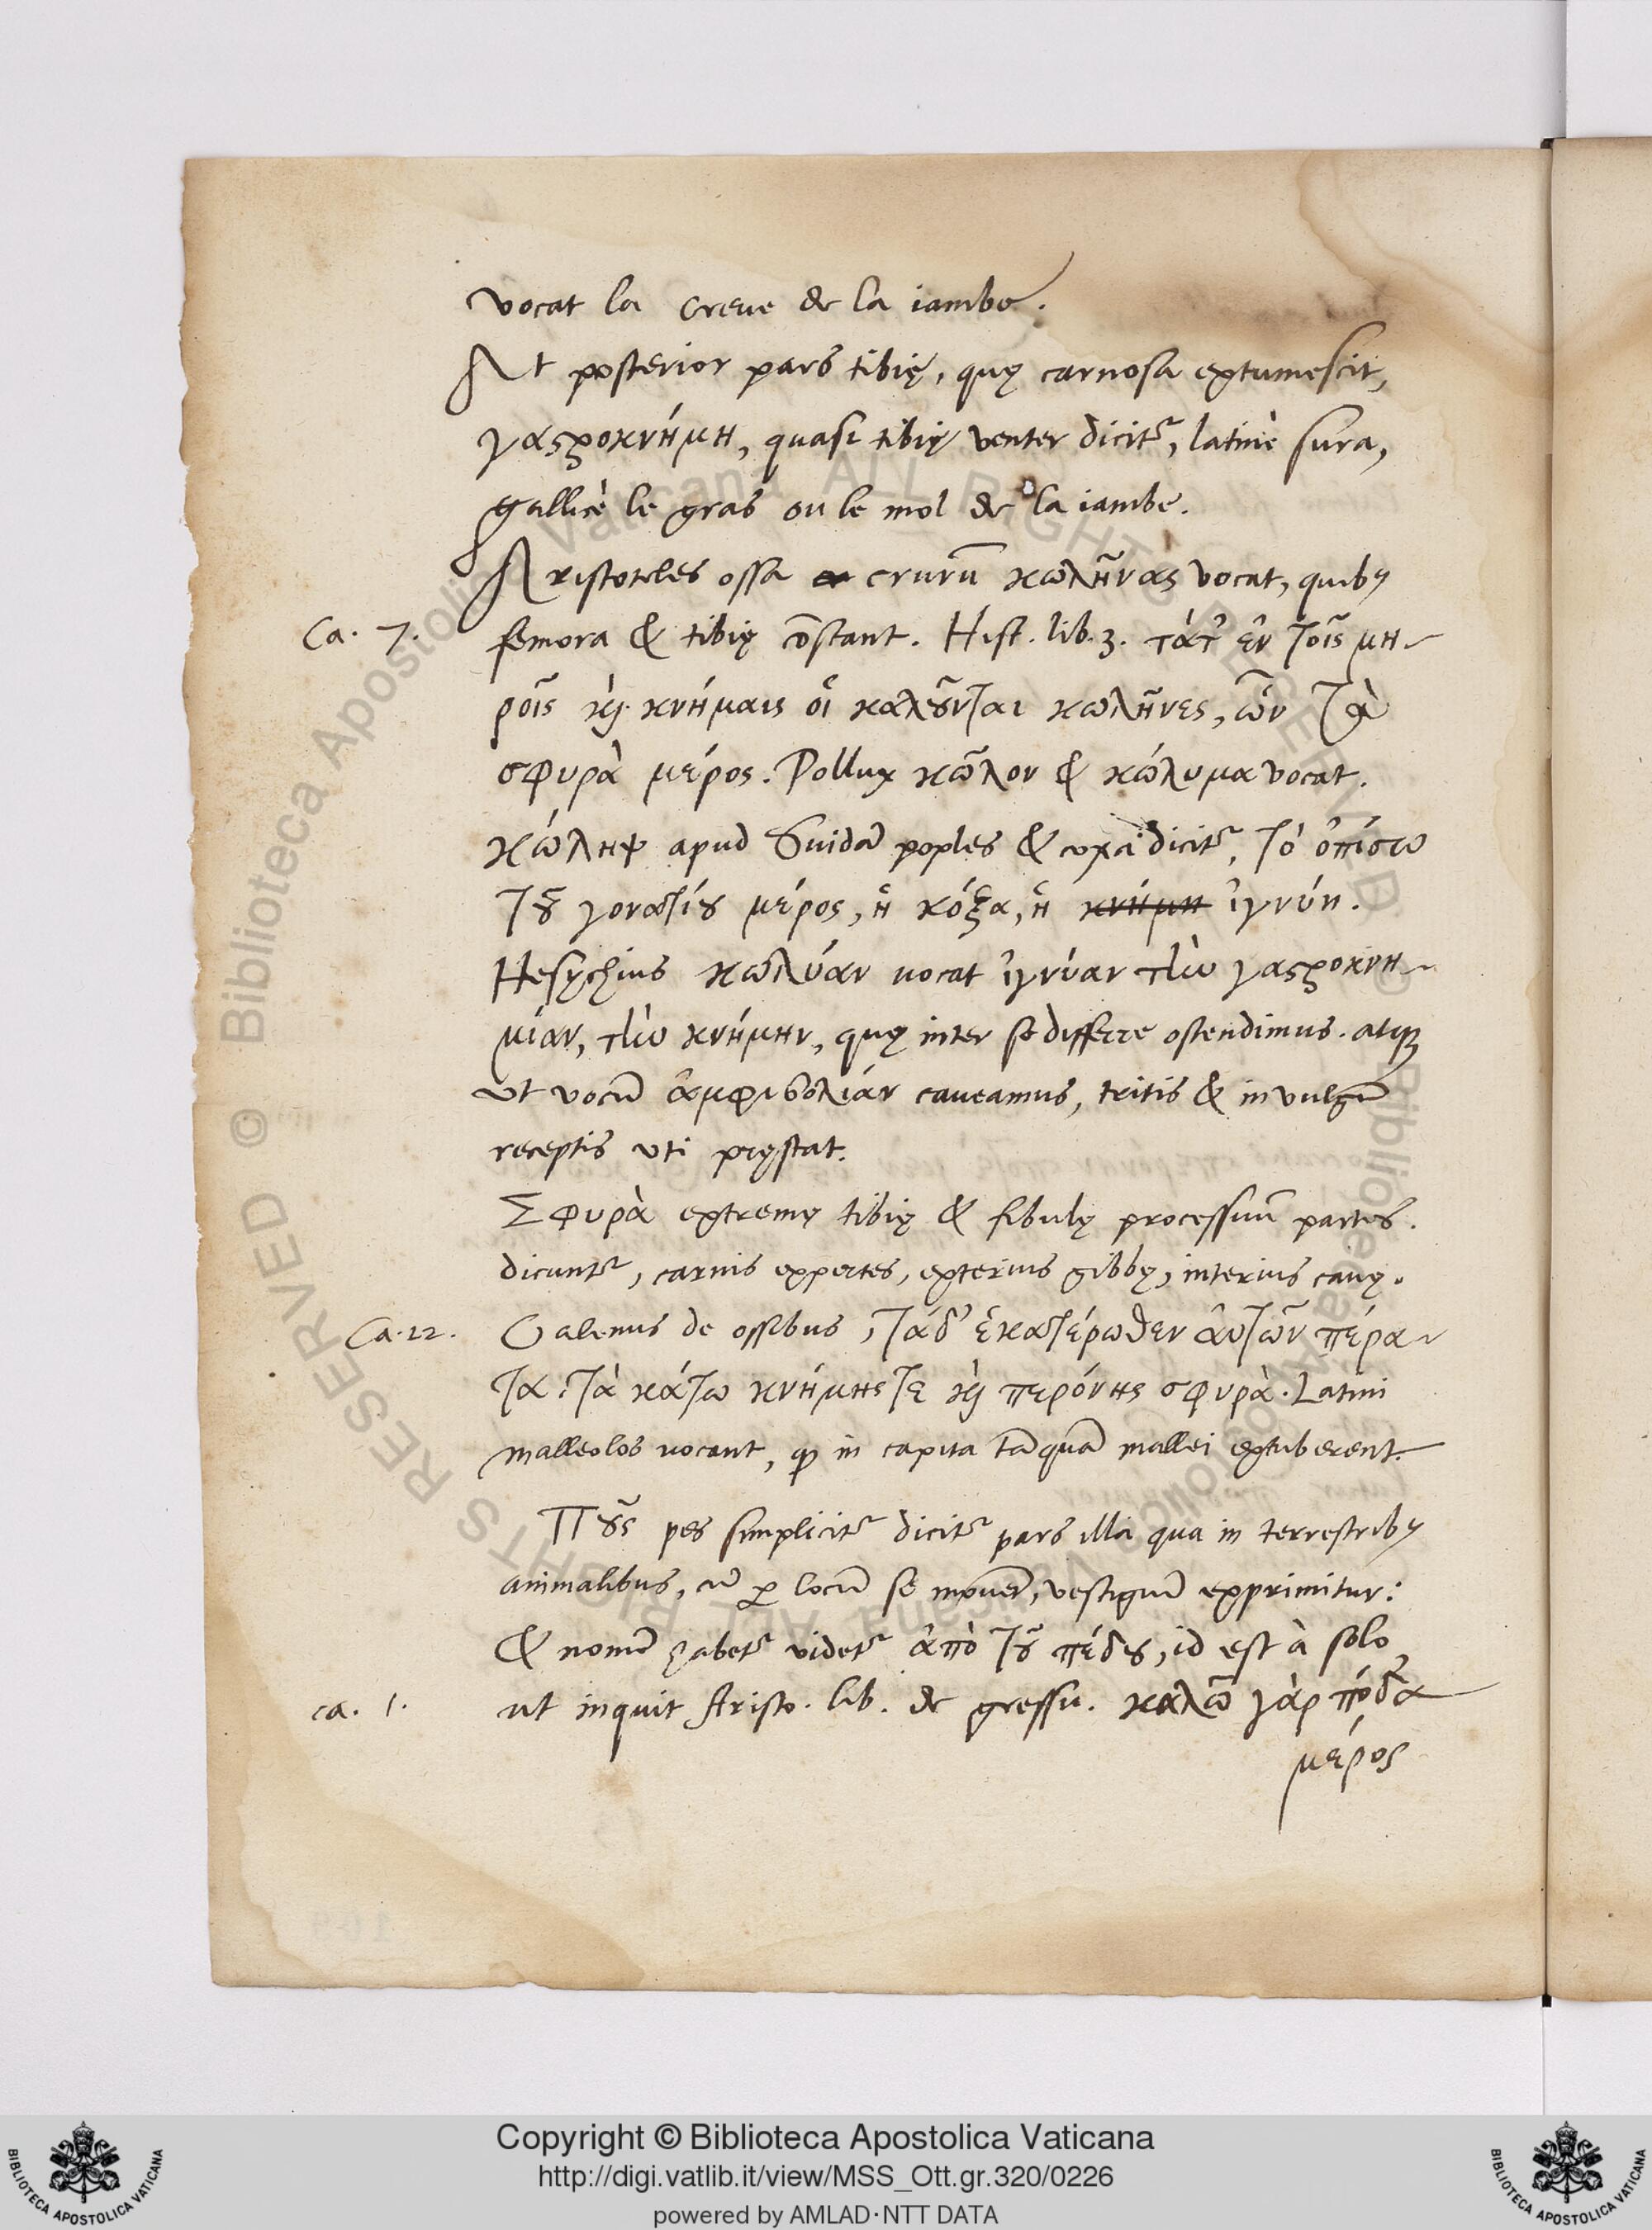 vocat la creue de la iambe.
At posterior pars tibię, quę carnosa extumescit,
γαστροκνήμη, quasi tibię venter dicitr, latinè sura,
gallicè le gras ou le mol de la iambe.
Aristoteles ossa crurū κωλῆνας vocat, quibus
Ca. 7.
femora & tibię cōstant. Hist. lib. 3. τάτ' ἐν τοῖς μη-
ροῖς καὶ κνήμαις οἳ καλοῦνται κωλῆνες, ὧν τὰ
σφυρὰ μέρος. Pollux κῶλον & κώλυμα vocat.
κώληψ apud Suidā poples & coxa dicitr, τὸ ὀπίσω
τοῦ γονατίου μέρος, ἢ κόξα, ἢ κνήμη ἰγνύη.
Hesychius κωλύαν uocat ἰγνύαν τὴν γαστροκνη-
μίαν, τὴν κνήμην, quę inter se differre ostendimus. atque
ut vocū ἀμφιβολίαν caueamus, tritis & in vulgū
receptis uti pręstat.
Σφυρὰ extremę tibię & fibulę processuū partes.
dicuntr, carnis expertes, exterius gibbę, interius cauę.
Ca. 22.
Galenus de ossibus, τὰ δ' ἑκατέρωθεν αὐτῶν πέρα-
τα τὰ κάτω κνήμης τε καὶ περόνης σφυρὰ. Latini
malleolos uocant, quod in capita tāquā mallei extuberent.
Ποῦς pes simplicitr dicitr pars illa qua in terrestribus
animalibus, cū per locū se mouēt, vestigiū exprimitur:
& nomē habetr videtr ἀπὸ τοῦ πέδου, id est à solo
ca. 1.
ut inquit Aristo. lib. de gressu. καλῶ γὰρ πόδα
μέρος
Copyright © Biblioteca Apostolica Vaticana
http://digi.vatlib.it/view/MSS_Ott.gr.320/0226
powered by AMLAD·NTT DATA
BIBLIOTECA APOSTOLICA VATICANA
BIBLIOTECA APOSTOLICA VATICANA